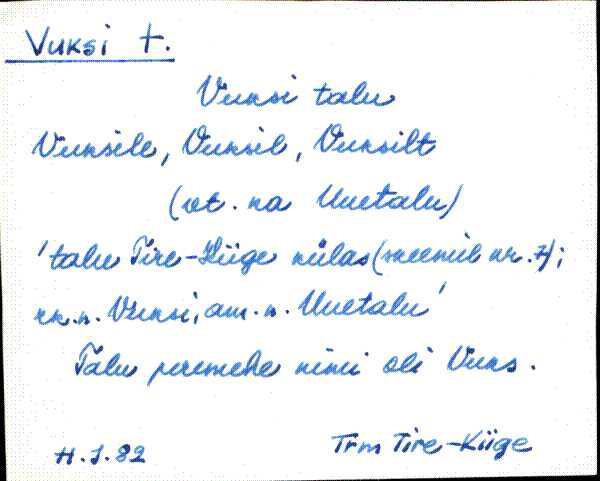 Vuksi t.
Vuksi talu
Vuksile, Vuksil, Vuksilt
(vt. ka Uuetalu)
'talu Tire-Kiige külas (skeemil nr. 7);
rk. n. Vuksi, am. n. Uuetalu'
Talu peremehe nimi oli Vuks.
H. J. 82 Trm Tire-Kiige